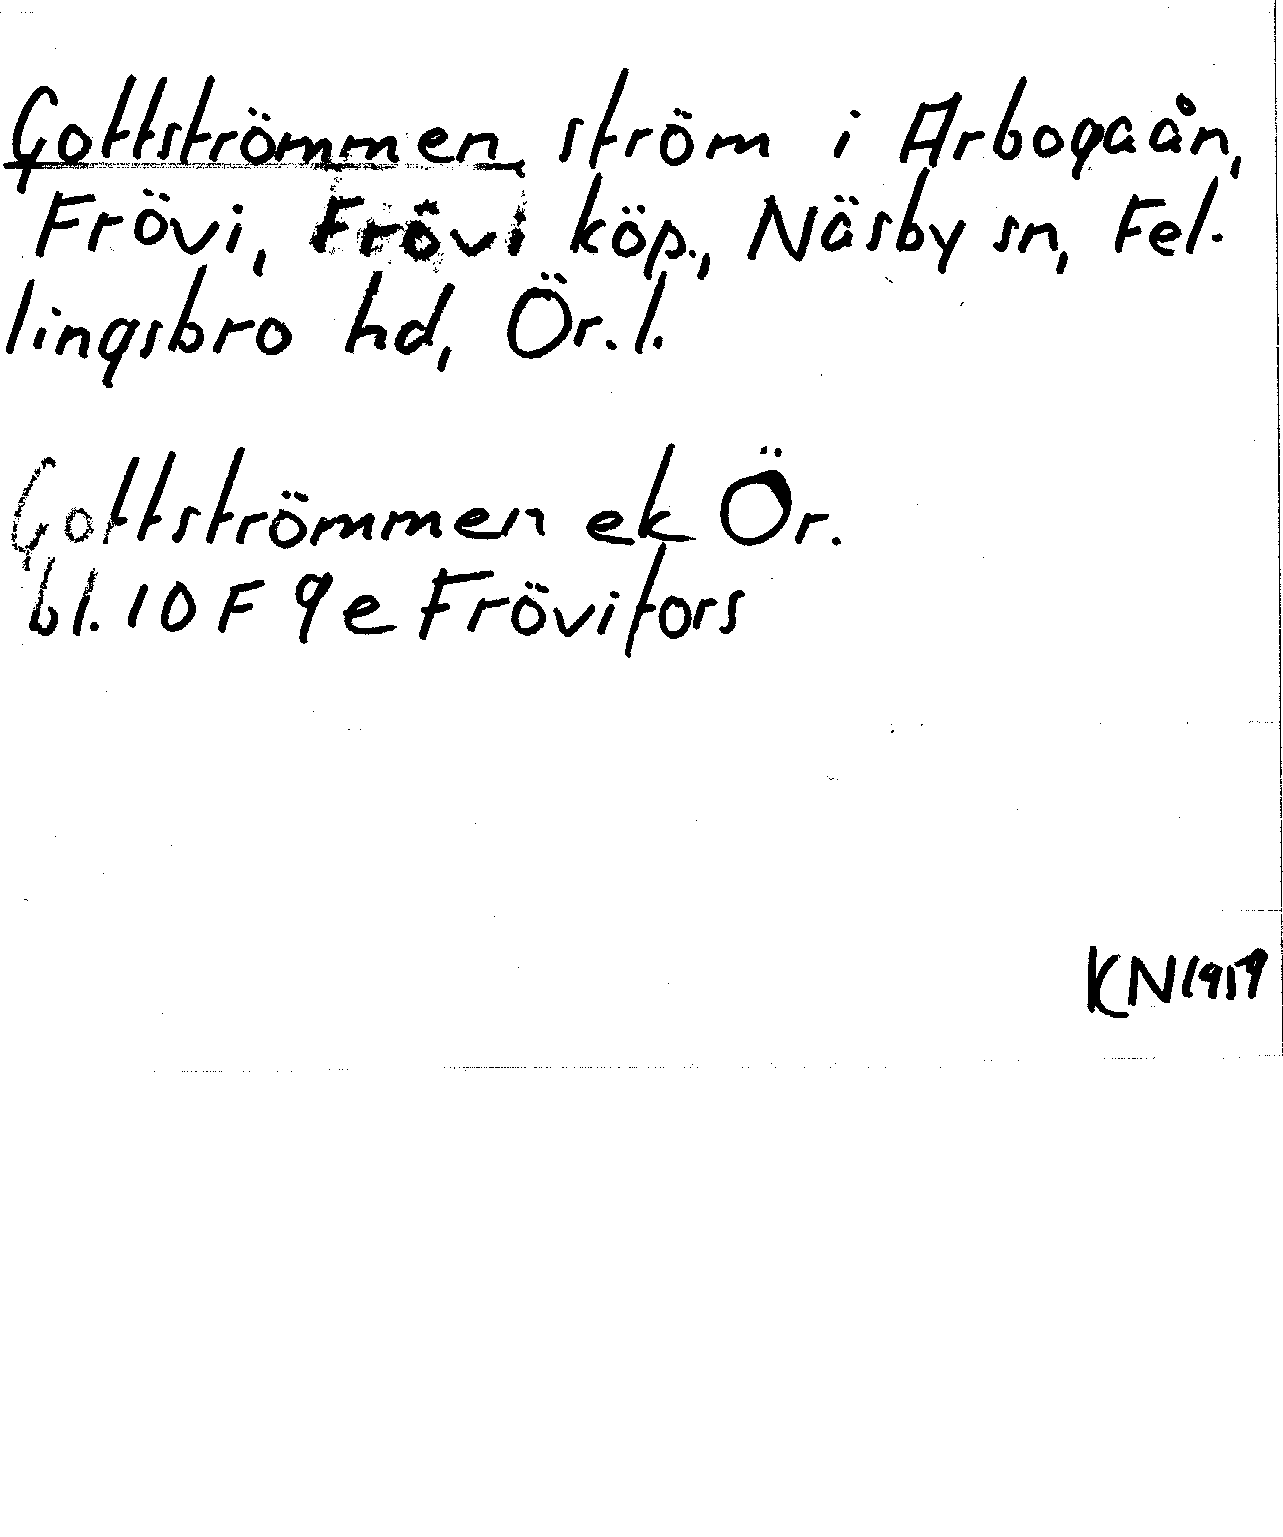 Gottströmmen, ström i Arbogaån,
Frövi, Frövi köp., Näsby sn, Fel-
lingsbro hd, Ör. l.
Gottströmmen ek Ör.
bl. 10 F 9e Frövifors
KN